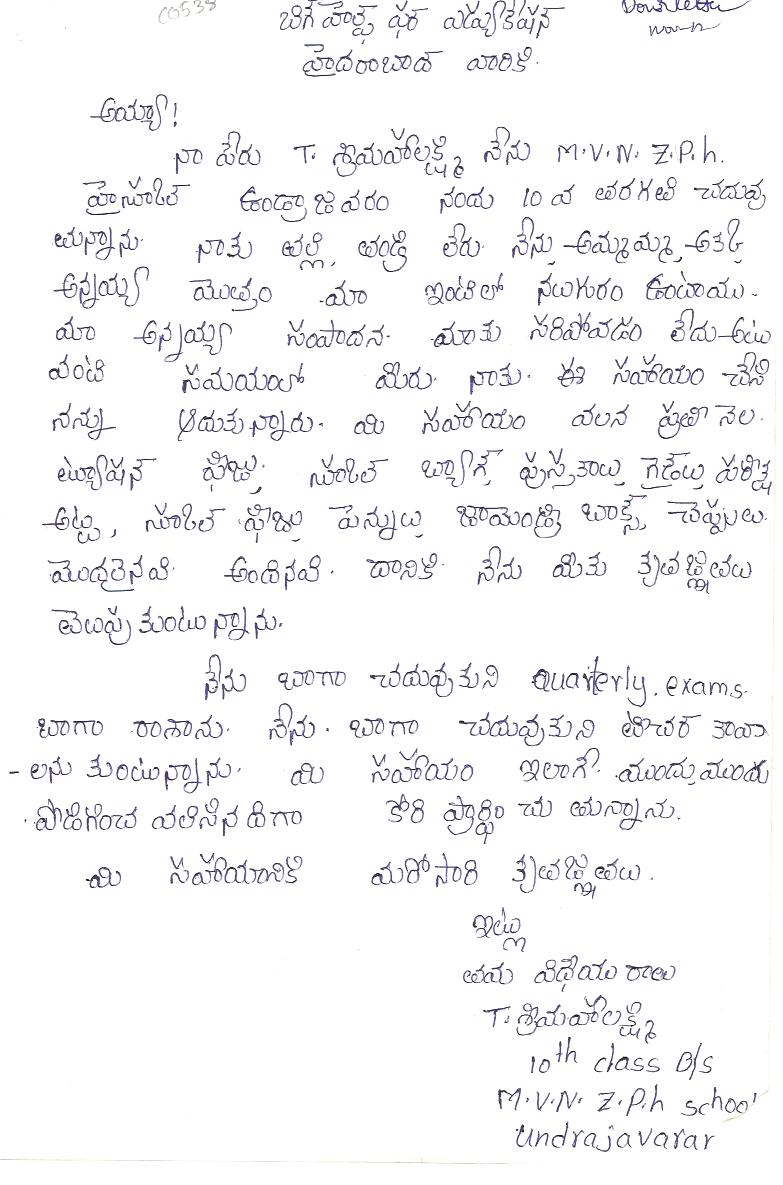 C0538
బిగ్ హెల్ప్ ఫర్ ఎడ్యుకేషన్
హైదరాబాద్ వారికి.
అయ్యా!
నా పేరు T. శ్రీమహాలక్ష్మి నేను M.V.N. Z.P.h.
హైస్కూల్ ఉండ్రాజవరం నందు 10 వ తరగతి చదువు
తున్నాను. నాకు తల్లి, తండ్రి లేరు. నేను అమ్మమ్మ
అన్నయ్య మొత్తం మా ఇంటిలో నలుగురం ఉంటాయి.
మా అన్నయ్య సంపాదన మాకు సరిపోవడం లేదు అటు
వంటి సమయంలో మీరు నాకు ఈ సహాయం చేసి
నన్ను ఆదుకున్నారు. మీ సహాయం వలన ప్రతి నెల
ట్యూషన్ ఫీజు, స్కూల్ బ్యాగ్ పుస్తకాలు గైడ్లు పరీక్ష
అట్ట, స్కూల్ ఫీజు పెన్నులు జామెంట్రీ బాక్స్ చెప్పులు
మొదలైనవి అందినవి. దానికి నేను మీకు కృతజ్ఞతలు
తెలుపుకుంటున్నాను.
నేను బాగా చదువుకుని quarterly exams.
బాగా రాశాను. నేను. బాగా చదువుకుని టీచర్ కావా
-లను కుంటున్నాను. మీ సహాయం ఇలాగే ముందుముందు
పొడిగించ వలసినదిగా కోరి ప్రార్థించు చున్నాను.
మీ సహాయానికి మరోసారి కృతజ్ఞతలు.
ఇట్లు
తమ విధేయురాలు
T. శ్రీమహాలక్ష్మి
10th class B/s
M.V.N. Z.P.h school
undrajavarar